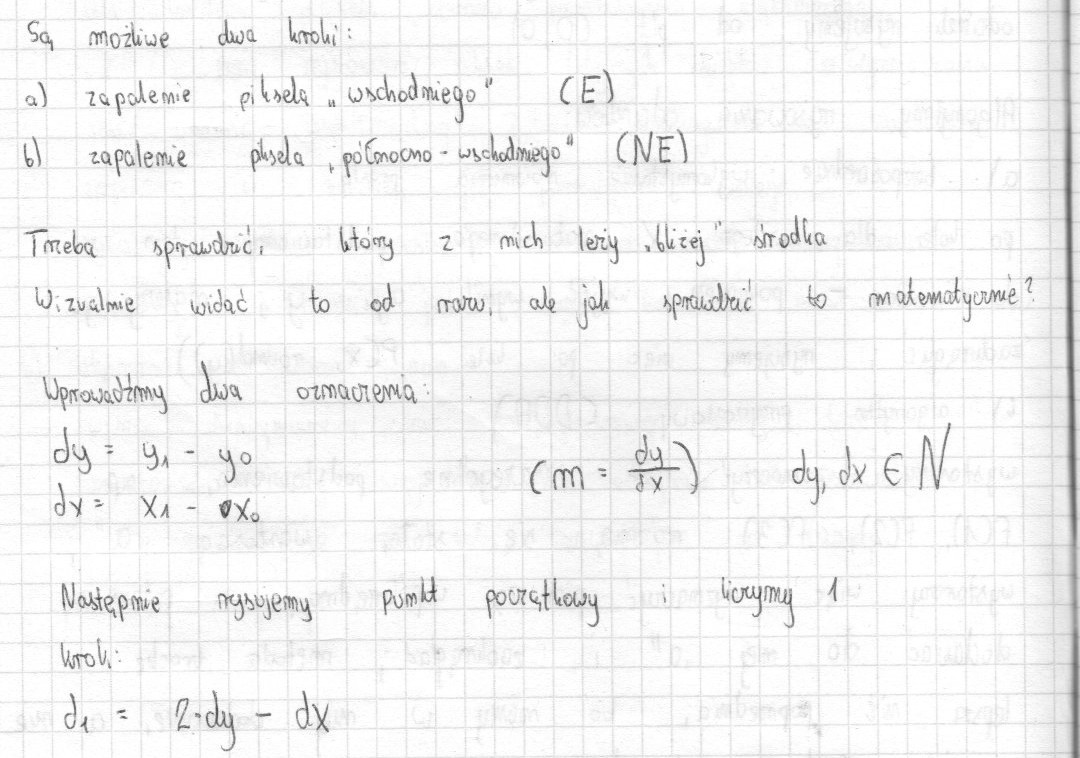 Są możliwe dwa kroki:
a) zapalenie piksela „wschodniego" (E)
b) zapalenie piksela „północno-wschodniego" (NE)
Trzeba sprawdzić, który z nich leży „bliżej" środka
Wizualnie widać to od razu, ale jak sprawdzić to matematycznie?
Wprowadźmy dwa oznaczenia:
dy = y₁ - y₀
dx = x₁ - x₀ (m = dy/dx) dy, dx ∈ N
Następnie rysujemy punkt początkowy i liczymy 1
krok:
d₁ = 2·dy - dx